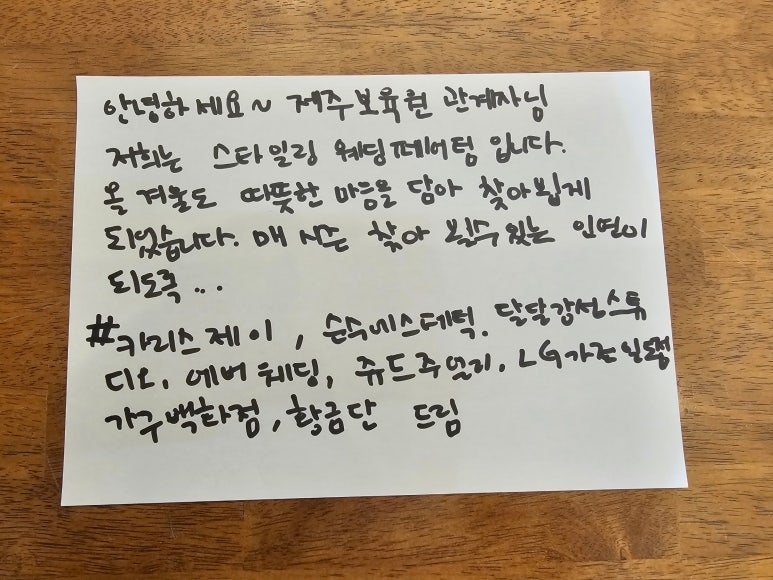 안녕하세요~ 제주보육원 관계자님
저희는 스타일링 웨딩페어팀 입니다.
올 겨울도 따뜻한 마음을 담아 찾아뵙게
되었습니다. 매 시즌 찾아 뵐수 있는 인연이
되도록...
#카리스제이, 순수에스테틱. 달달강선스튜
디오, 에버웨딩, 쥬드주얼리, LG가전
가구백화점, 황금단 드림